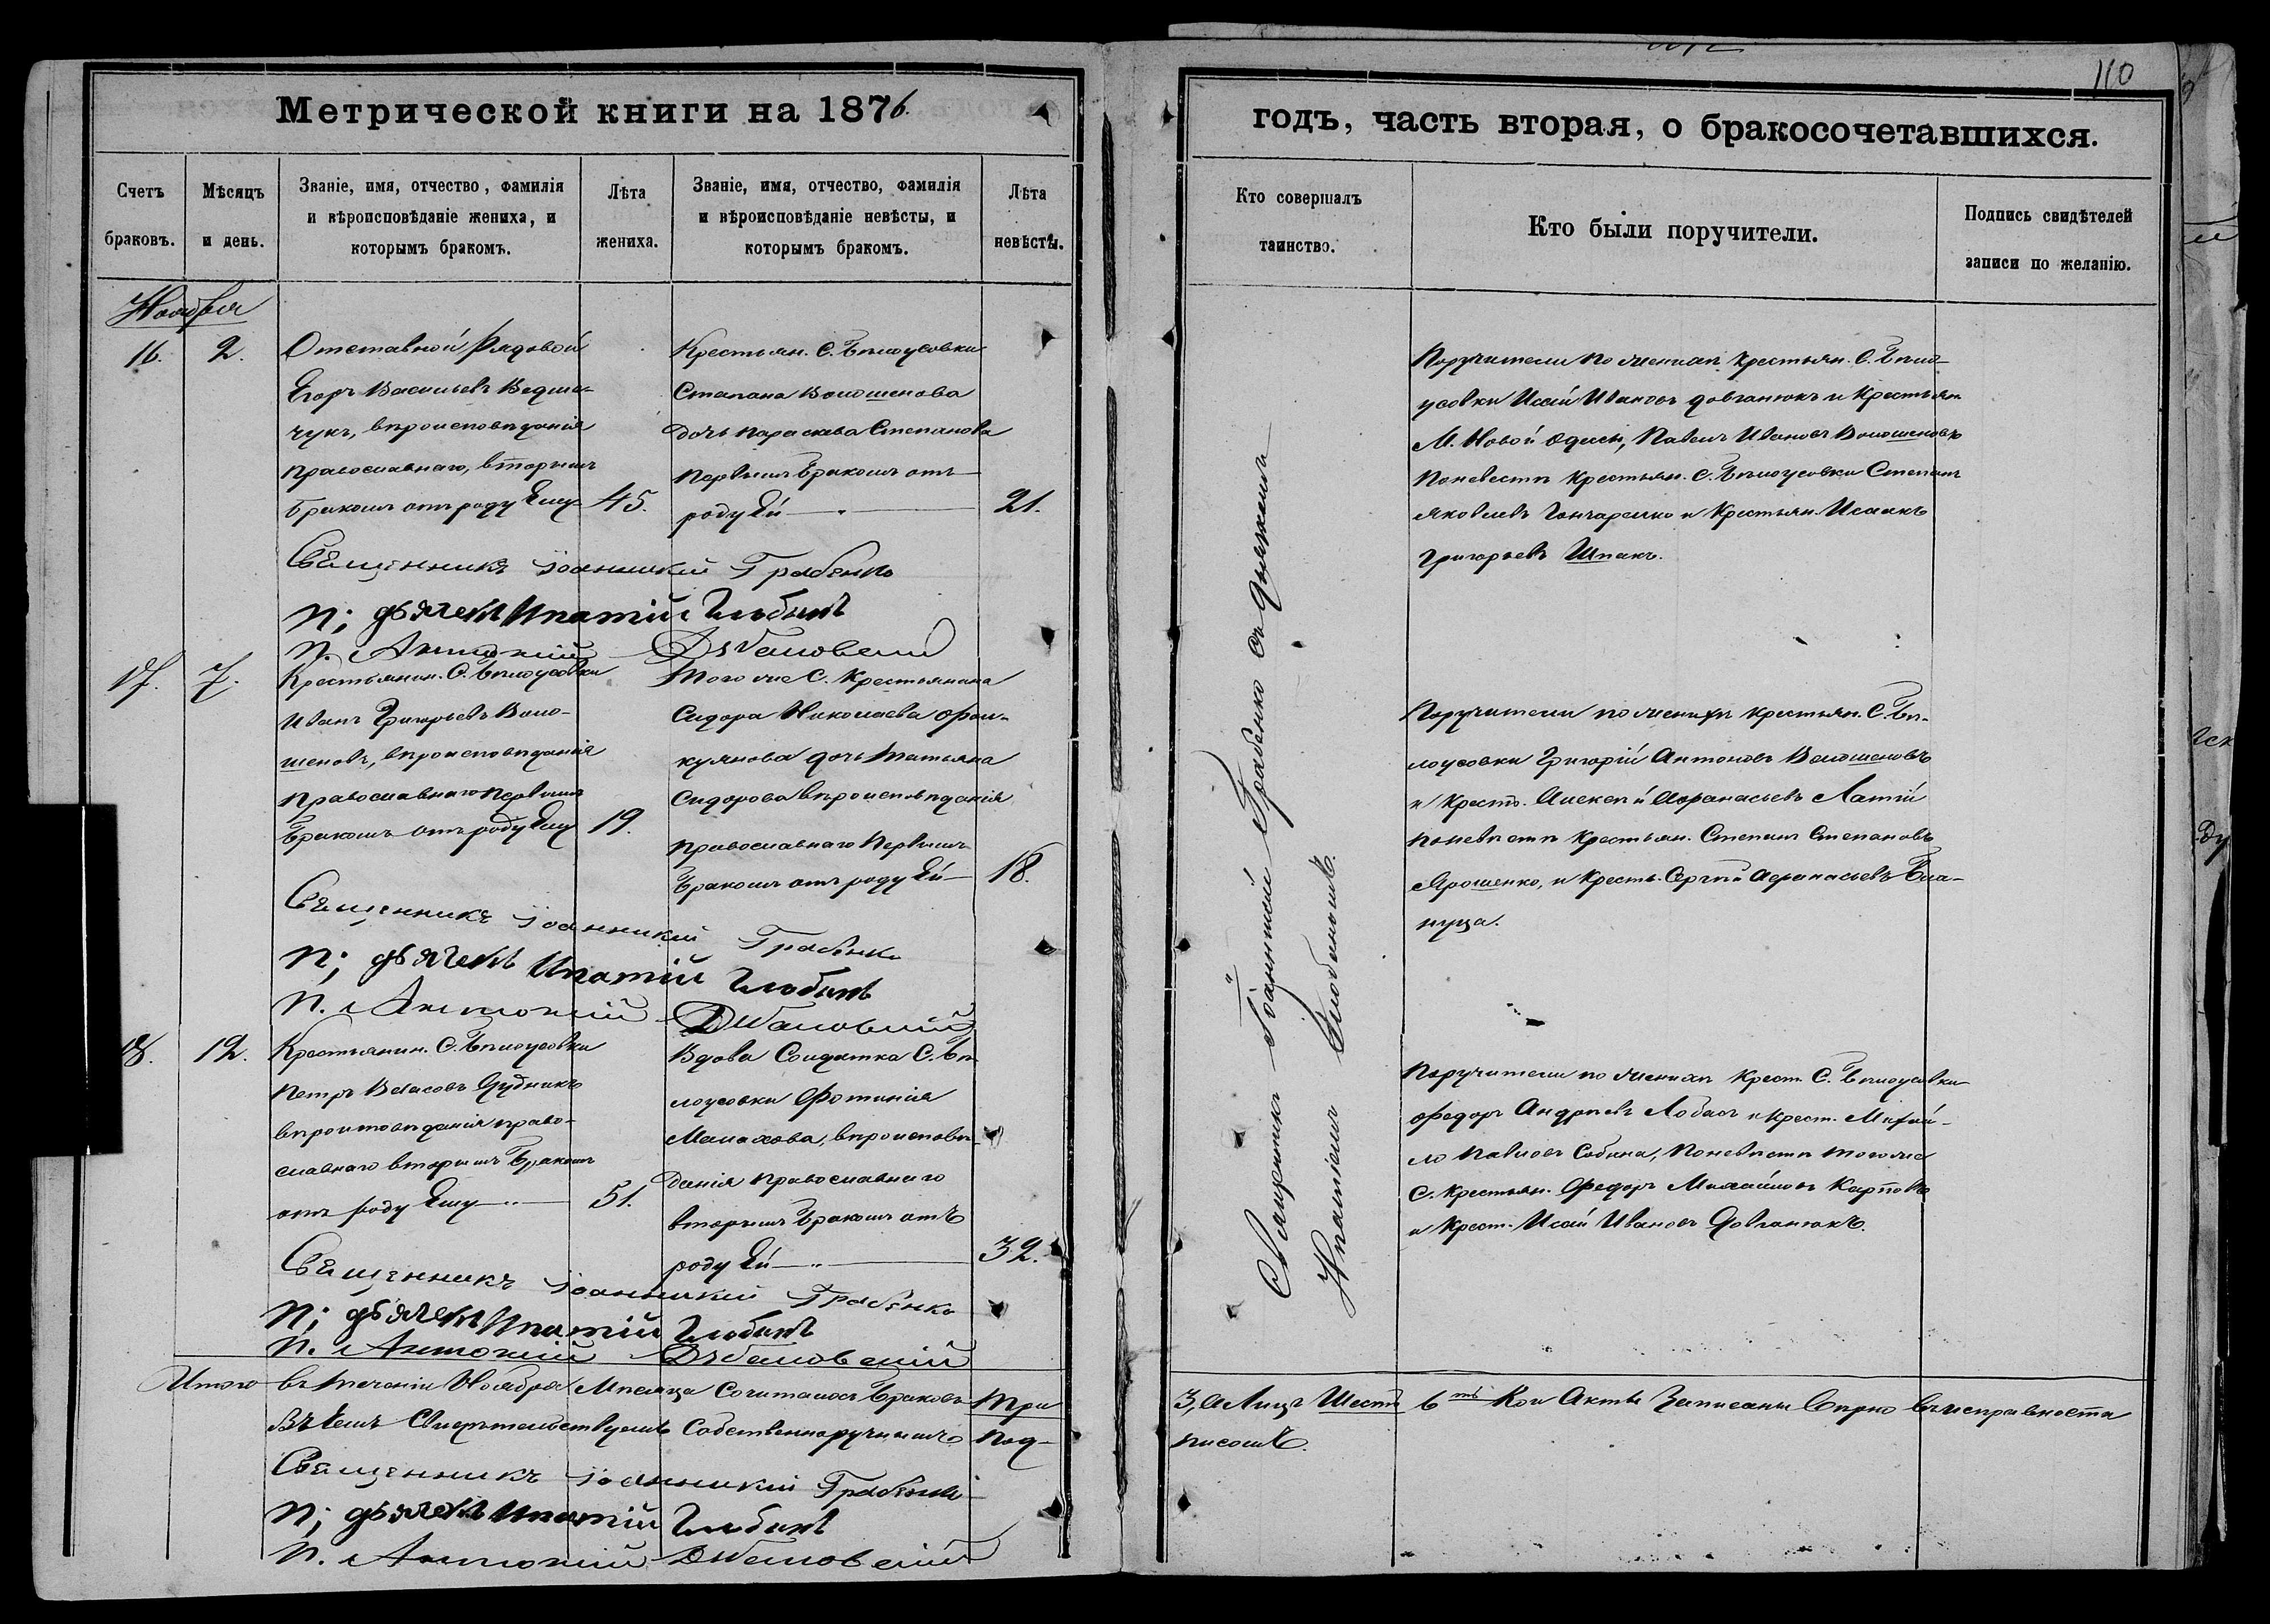 110
Метрической книги на 1876.
годъ, часть вторая, о бракосочетавшихся.
Счетъ браковъ.
Мѣсяцъ и день.
Званіе, имя, отчество, фамилія
и вѣроисповѣданіе жениха, и
которымъ бракомъ.
Лѣта
жениха.
Званіе, имя, отчество, фамилія
и вѣроисповѣданіе невѣсты, и
которымъ бракомъ.
Лѣта
невѣсты.
Кто совершалъ
таинство.
Кто были поручители.
Подпись свидѣтелей
записи по желанію.
Ноября
16. 2.
Отставной Рядовой
Егоръ Васильевъ Ведме-
чукъ, вѣроисповѣданія
православнаго, вторымъ
бракомъ отъ роду Ему 45.
Крестьян. С. Бѣлоусовки
Степана Волошенова
дочь Параскева Степанова
первымъ бракомъ отъ
роду Ей 21.
Поручители по женихѣ крестьян. С. Бѣло-
усовки Исай Ивановъ Довганюкъ и Крестьян
М. Новой Одессы, Павелъ Ивановъ Волошеновъ
по невестѣ крестьян. С. Бѣлоусовки Степанъ
Яковлевъ Гончаренко и Крестьян. Исаакъ
Григорьевъ Шпакъ.
Священникъ Іоанникий Грабенко
П; дьячекъ Ипатій
П. Антоній
17. 7.
Крестьянин. С. Бѣлоусовки
Иванъ Григорьевъ Воло-
шеновъ, вѣроисповѣданія
Православнаго первымъ
бракомъ отъ роду Ему 19.
Того же С. Крестьянина
Сидора Николаева
дочь Татьяна
Сидорова вѣроисповѣданія
православнаго первымъ
бракомъ отъ роду Ей 18.
Поручители по женихѣ крестьян. С. Бѣ-
лоусовки Григорій Антоновъ Волошеновъ
и Крест. Алексѣй Афанасьевъ Латій
по невѣстѣ крестьян. Степанъ Степановъ
Ярошенко, и Кресть. Сергѣй Афанасьевъ

Священникъ Іоанникий Грабенко
П; дьячекъ Ипатій
П. Антоній
18. 12.
Крестьянин. С. Бѣлоусовки
Петръ Власовъ Дудникъ
вѣроисповѣданія право-
славнаго вторымъ бракомъ
отъ роду Ему 51.
Вдова Солдатка С. Бѣ-
лоусовки Фотинія
Малахова, вѣроисповѣ-
данія православнаго
вторымъ бракомъ отъ
роду Ей 32.
Поручители по женихѣ крест. С. Бѣлоусовки
Федоръ Андреевъ Лобасъ и крест. Михай-
ло Павловъ Собина, по невѣстѣ того же
С. Крестьян. Федоръ Михайловъ Карповъ
и Крест. Исай Ивановъ Довганюкъ.
Священникъ Іоанникий Грабенко
П; дьячекъ Ипатій
П. Антоній
Священникъ Іоанникій Грабенко съ дьячкомъ
Ипатіемъ
Итого въ теченіи Ноября Мѣсяца Сочиталось браковъ Три 3, а Лицъ Шесть 6ть Кои Акты Записаны вѣрно въ исправности
Въ чемъ Свидѣтельствуемъ Собственноручнымъ под-
писомъ.
Священникъ Іоанникий Грабенко
П; дьячекъ Ипатій
П. Антоній